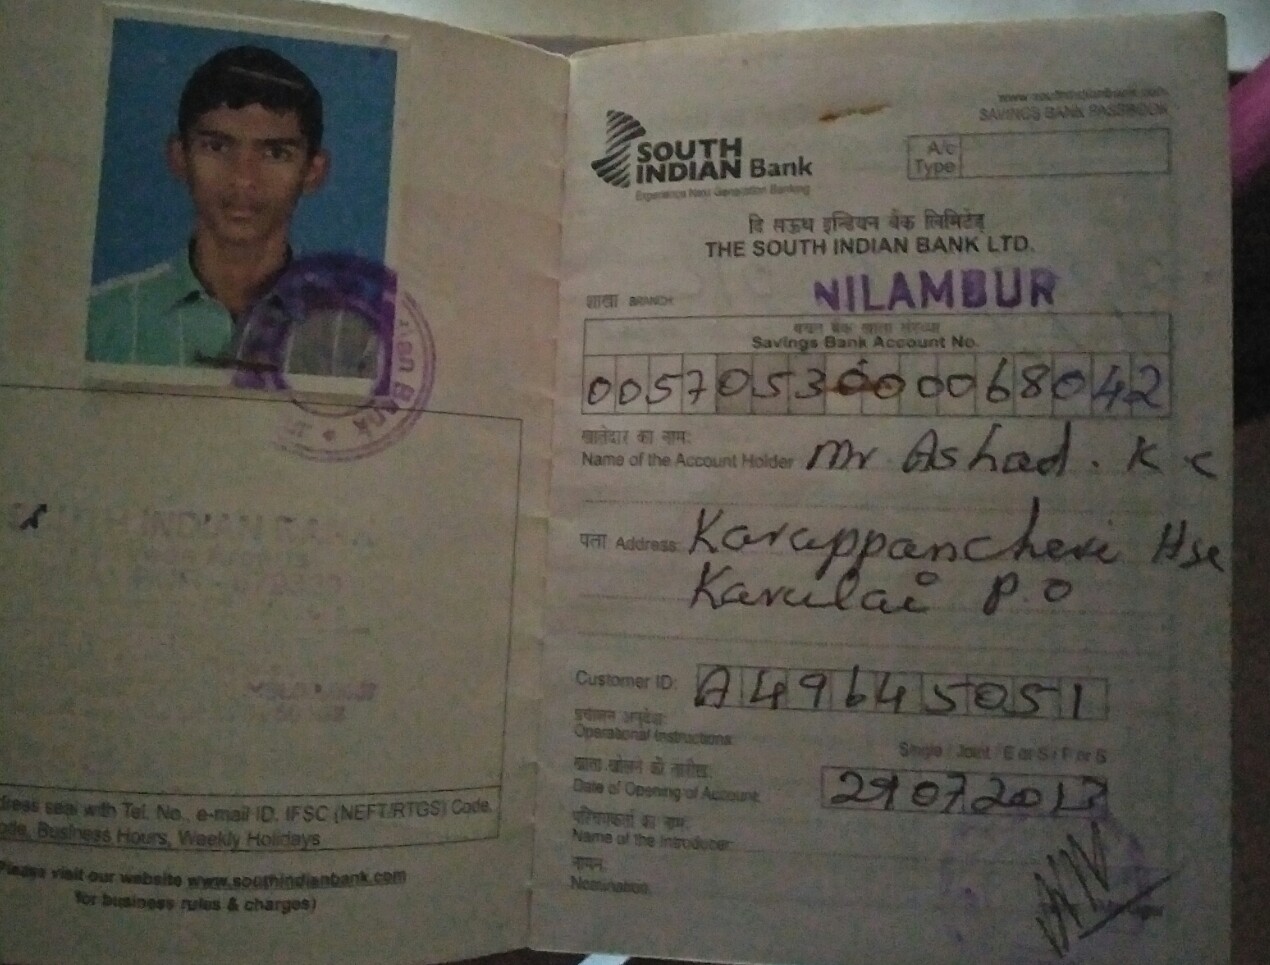 Bank
INDIAN BANK
dress seal with Tel. No., e-mail ID, IFSC (NEFT/RTGS) Code,
ode, Business Hours, Weekly Holidays
Please visit our website www.southindianbank.com
for business rules & charges)
www.southindianbank.com
SAVINGS BANK PASSBOOK
SOUTH INDIAN Bank
Experience Next Generation Banking
A/c Type
दि साऊथ इन्डियन बैंक लिमिटेड्
THE SOUTH INDIAN BANK LTD.
शाखा BRANCH: NILAMBUR
बचत बैंक खाता संख्या
Savings Bank Account No.
0057053000068042
खातेदार का नाम:
Name of the Account Holder Mr Ashad . K C
पता Address: Karappancheri Hse
Karulai P.O
Customer ID: A49645051
प्रचालन अनुदेश:
Operational Instructions: Single / Joint / E or S / F or S
खाता खोलने की तारीख:
Date of Opening of Account: 29072013
परिचयकर्ता का नाम:
Name of the Introducer:
नामन:
Nomination: